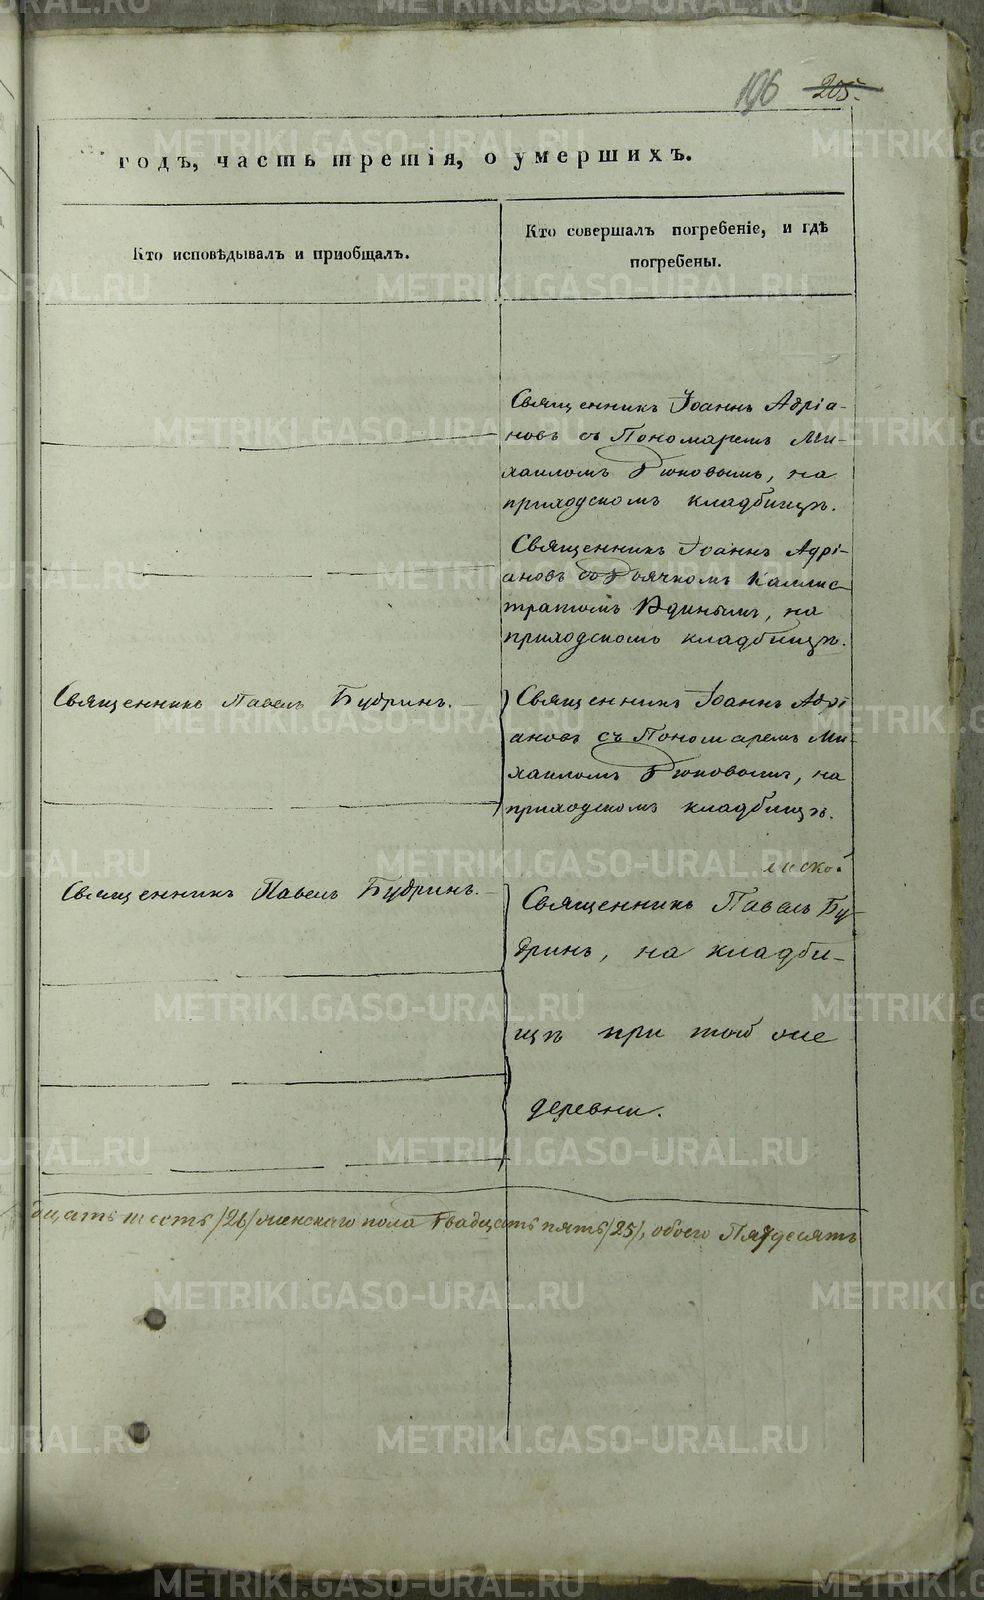 196 205.
годъ, часть третія, о умершихъ.
Кто исповѣдывалъ и пріобщалъ.
Кто совершалъ погребеніе, и гдѣ
погребены.
Священникъ Іоаннъ Адріа-
новъ съ Пономаремъ Ми-
хаиломъ Рюковымъ, на
приходскомъ кладбищѣ.
Священникъ Іоаннъ Адрі-
ановъ со Дьячкомъ Каллис
тратомъ, на
приходскомъ кладбищѣ.
Священникъ Павелъ Будринъ.
Священникъ Іоаннъ Адрі
ановъ съ Пономаремъ Ми-
хаиломъ Рюковымъ, на
приходскомъ кладбищѣ.
Священникъ Павелъ Будринъ.
Священникъ Павелъ Бу-
дринъ, на кладби-
щѣ при той же
деревни.
дцать шесть /26/ женскаго пола двадцать пять /25/, обоего Пятдесятъ
METRIKI.GASO-URAL.RU